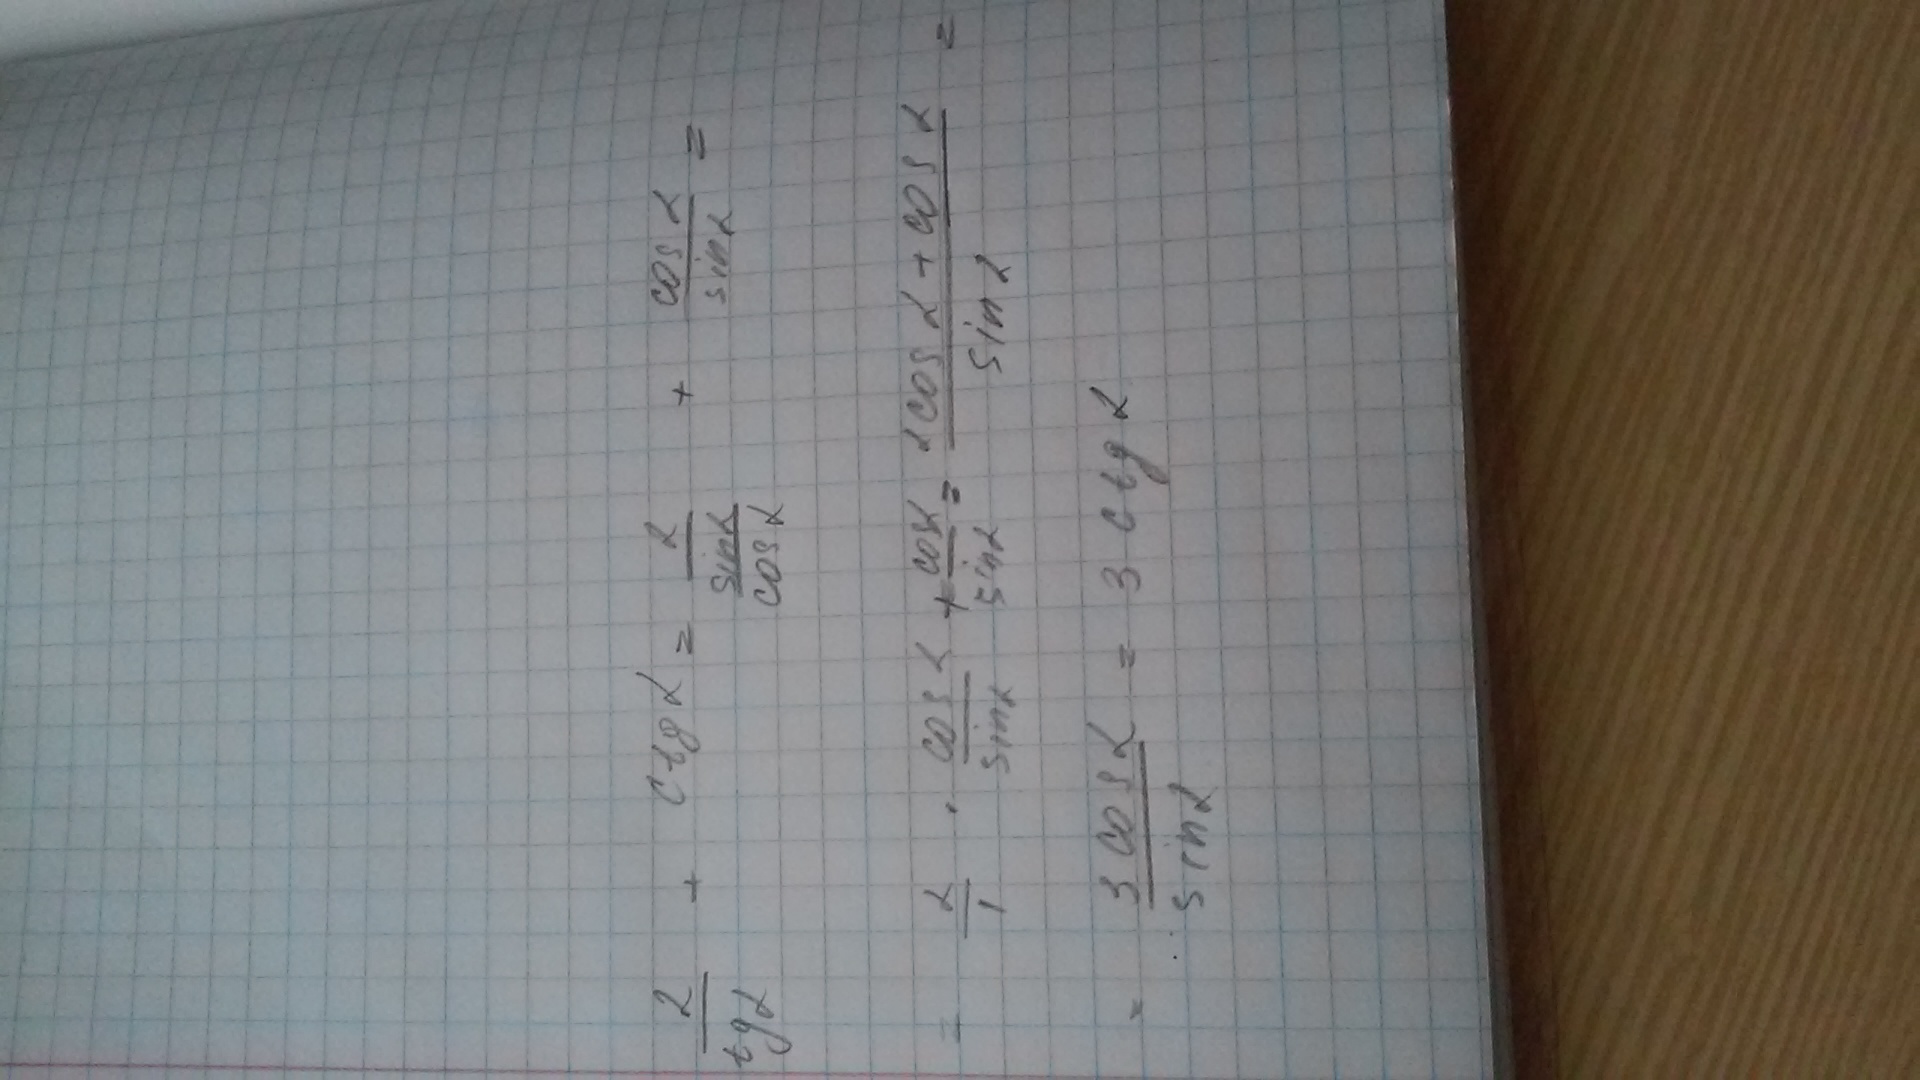 2/tgα + ctgα = 2/(sinα/cosα) + cosα/sinα =
= 2/1 · cosα/sinα + cosα/sinα = (2cosα + cosα)/sinα =
= 3cosα/sinα = 3ctgα